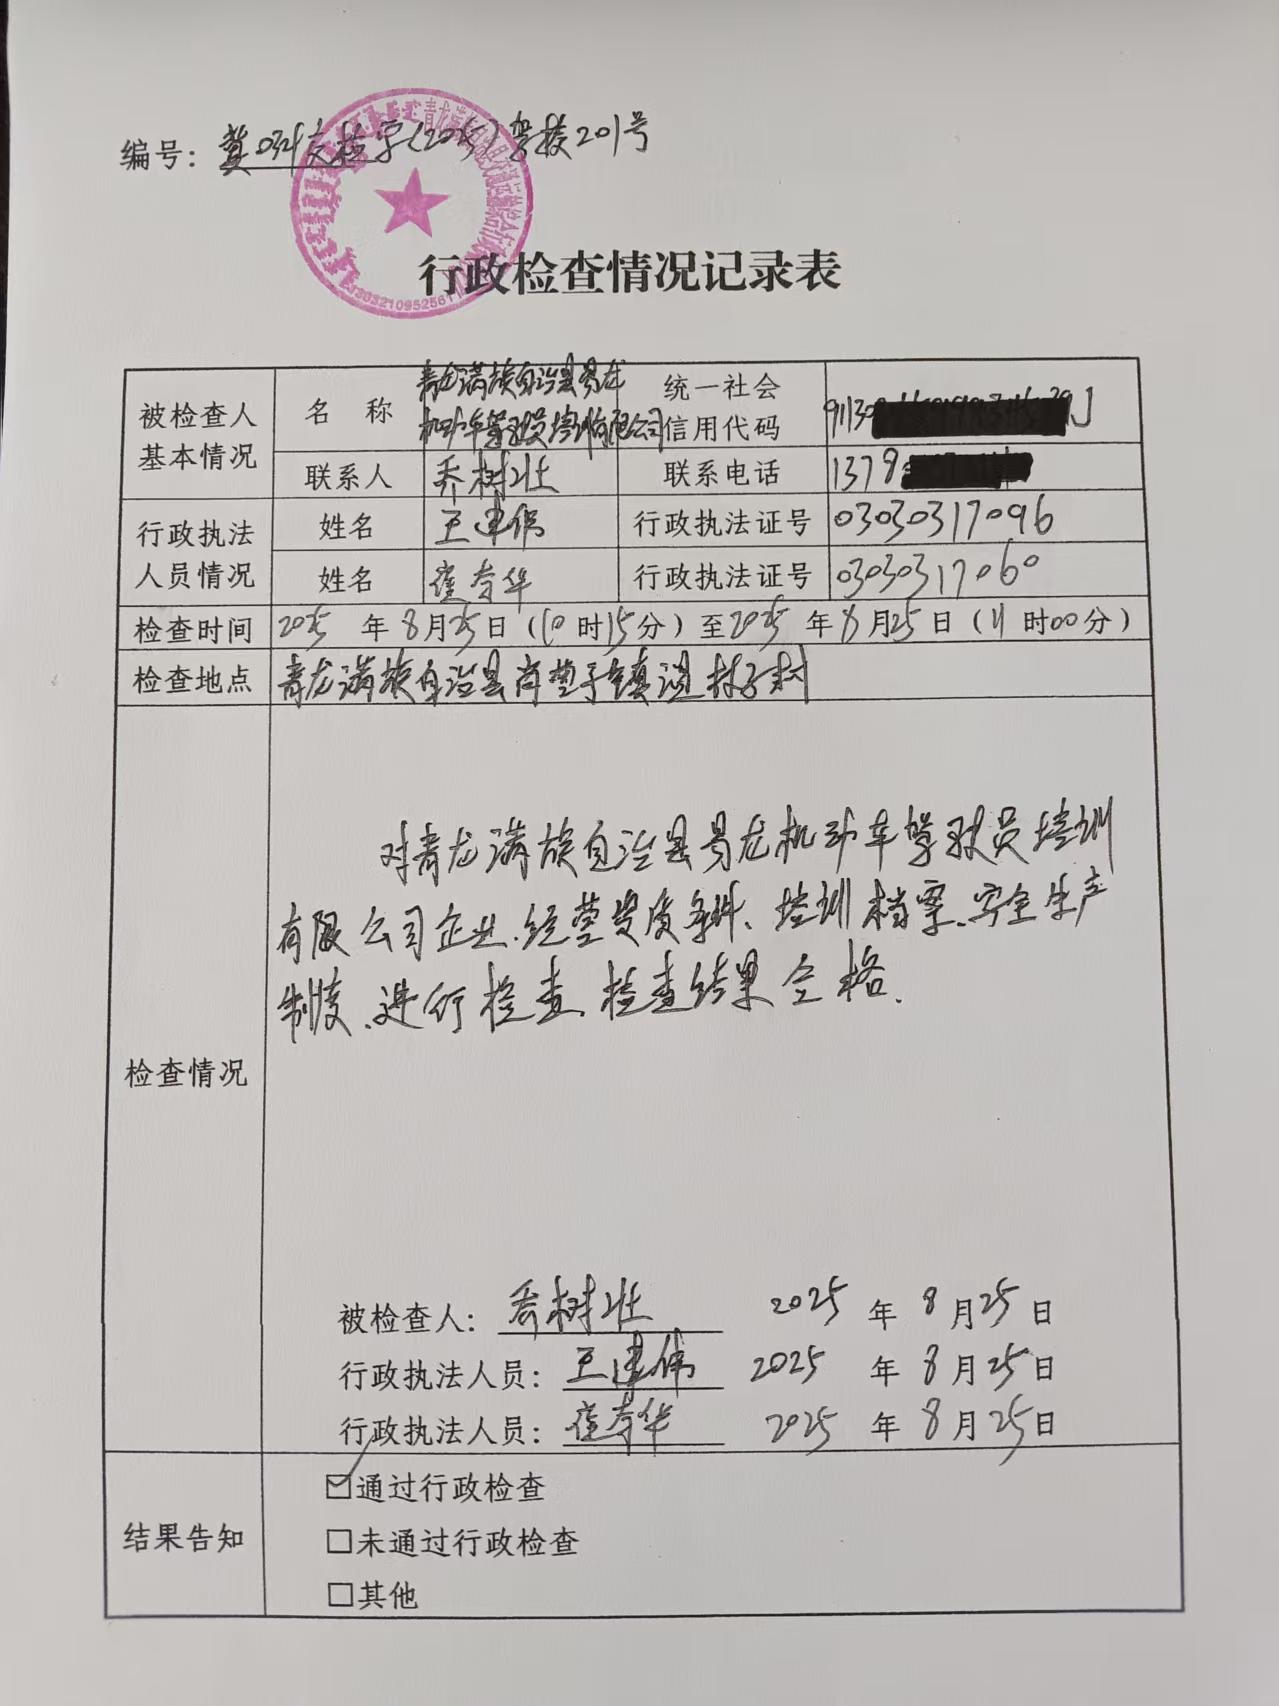 编号：冀0321交检字(2025)驾校201号
行政检查情况记录表
被检查人基本情况
名 称
青龙满族自治县易龙
机动车驾驶员培训有限公司
统一社会信用代码
91130
39J
联系人
乔树壮
联系电话
1379
行政执法人员情况
姓名
王建伟
行政执法证号
03030317096
姓名
崔春华
行政执法证号
03030317060
检查时间
2025 年 8月25日（10时15分）至2025年8月25日（11时00分）
检查地点
青龙满族自治县肖营子镇 村
检查情况
对青龙满族自治县易龙机动车驾驶员培训
有限公司企业、经营资质条件、培训档案、安全生产
制度、进行检查、检查结果合格.
被检查人：乔树壮 2025 年 8月25日
行政执法人员：王建伟 2025 年 8月25日
行政执法人员：崔春华 2025 年 8月25日
结果告知
☑通过行政检查
□未通过行政检查
□其他